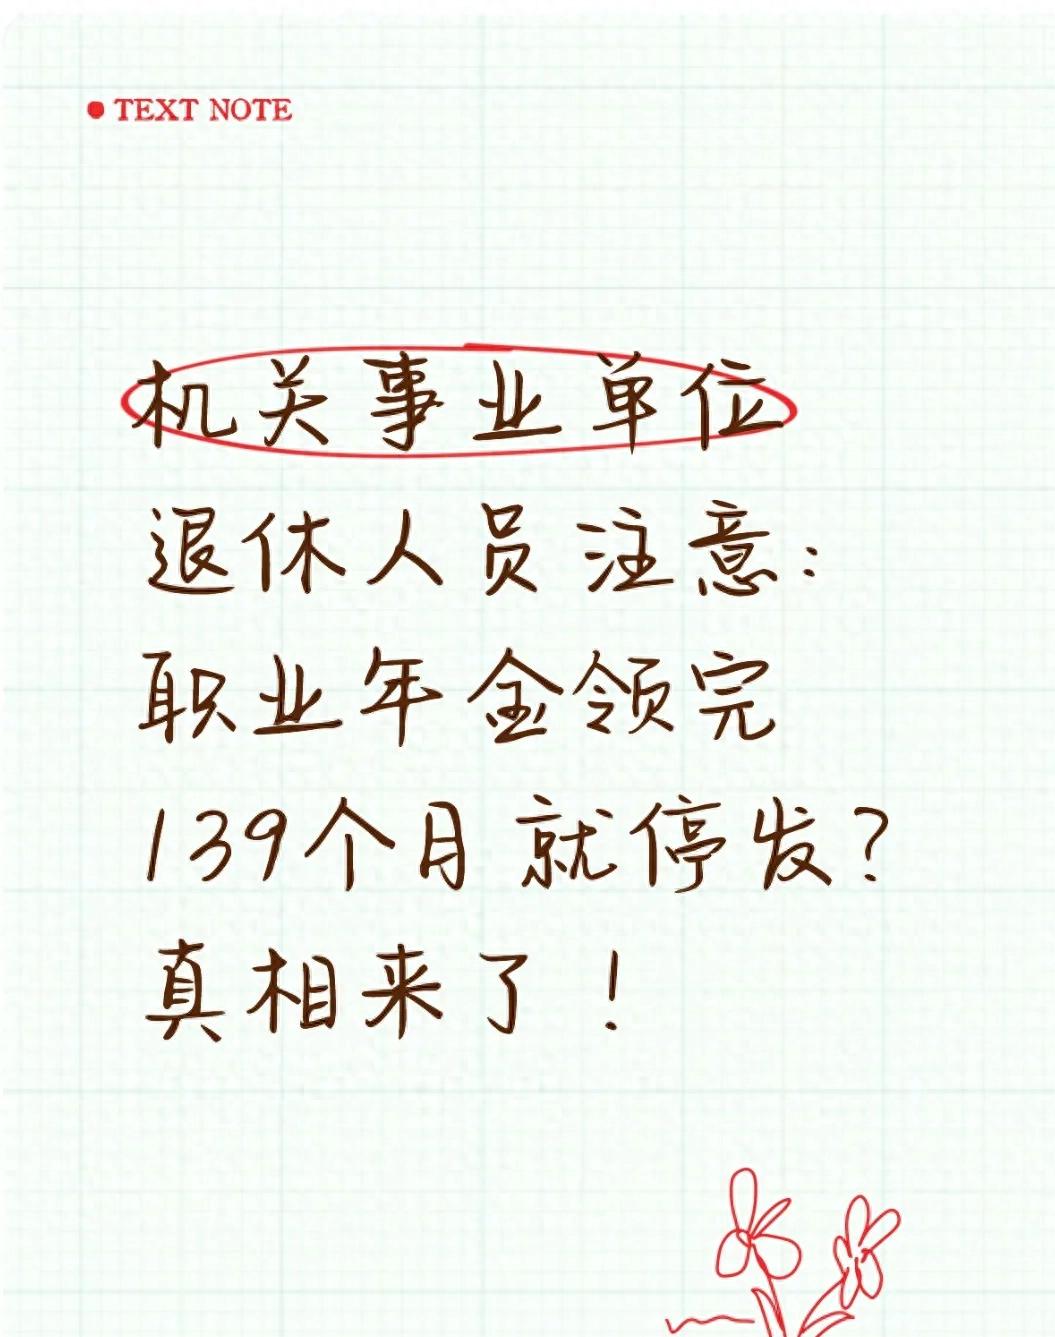 TEXT NOTE
机关事业单位
退休人员注意：
职业年金领完
139个月就停发？
真相来了！